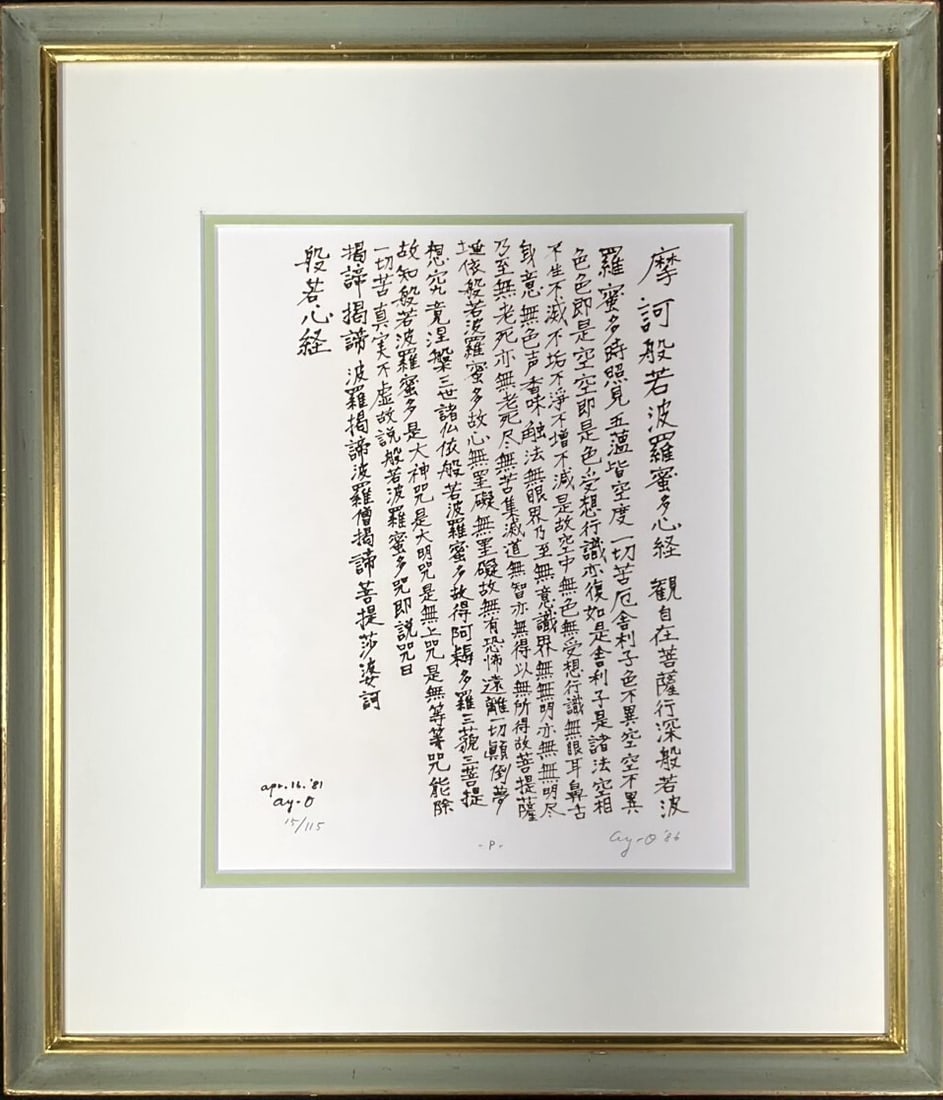 摩訶般若波羅蜜多心経 観自在菩薩行深般若波
羅蜜多時照見五蘊皆空度一切苦厄舎利子色不異空空不異
色色即是空空即是色受想行識亦復如是舎利子是諸法空相
不生不滅不垢不淨不增不減是故空中無色無受想行識無眼耳鼻舌
身意無色声香味触法無眼界乃至無意識界無無明亦無無明尽
乃至無老死亦無老死尽無苦集滅道無智亦無得以無所得故菩提薩
埵依般若波羅蜜多故心無罣礙無罣礙故無有恐怖遠離一切顚倒夢
想究竟涅槃三世諸仏依般若波羅蜜多故得阿耨多羅三藐三菩提
故知般若波羅蜜多是大神咒是大明咒是無上咒是無等等咒能除
一切苦真実不虚故説般若波羅蜜多咒即説咒曰
揭諦揭諦波羅揭諦波羅僧揭諦菩提莎婆訶
般若心経
apr. 16. '81
ay-O
15/115
-P-
ay-O '86